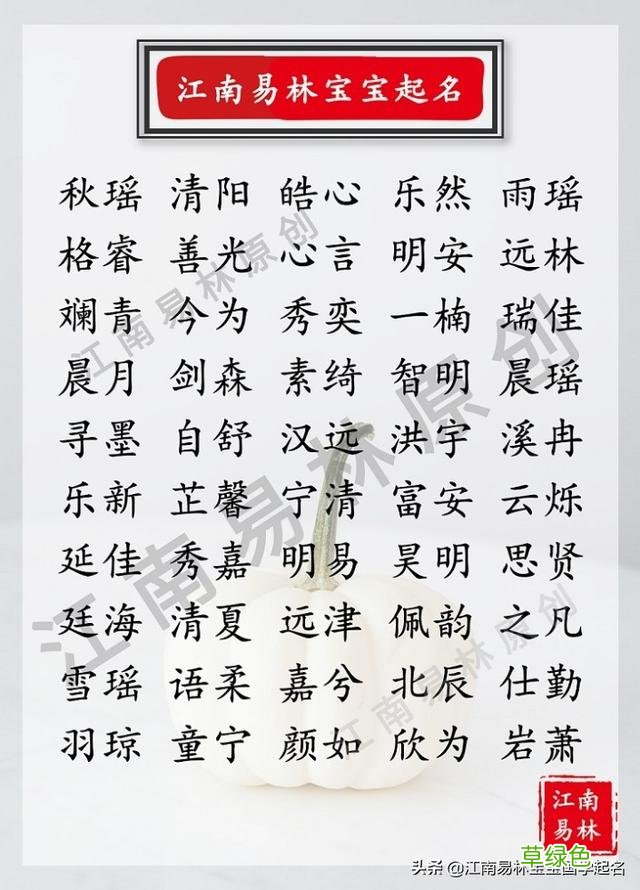 江南易林宝宝起名
秋瑶 清阳 皓心 乐然 雨瑶
格睿 善光 心言 明安 远林
斓青 今为 秀奕 一楠 瑞佳
晨月 剑森 素绮 智明 晨瑶
寻墨 自舒 汉远 洪宇 溪冉
乐新 芷馨 宁清 富安 云烁
延佳 秀嘉 明易 昊明 思贤
廷海 清夏 远津 佩韵 之凡
雪瑶 语柔 嘉兮 北辰 仕勤
羽琼 童宁 颜如 欣为 岩萧
江南易林原创
江南易林原创
江南易林原创
江南
易林
草绿色
头条 @江南易林宝宝国学起名